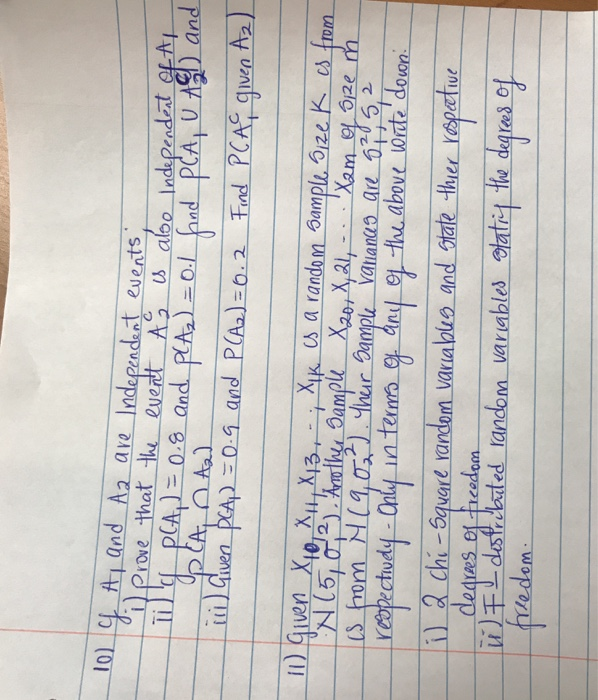 10) If A1 and A2 are Independent events
i) prove that the event A2^c is also independent of A1
ii) If p(A1) = 0.8 and p(A2) = 0.1 find p(A1 ∪ A2^c) and
p(A1 ∩ A2)
iii) Given p(A1) = 0.9 and P(A2) = 0.2 Find P(A1^c given A2)
11) Given X10, X11, X13, ..., X1K is a random sample size K is from
N(5, σ1^2). Another sample X20, X21, ... X2m of size m
is from N(9, σ2^2). Their sample variances are S1^2,
respectively. Only in terms of any of the above write down:
i) 2 chi-square random variables and state thier respective
degrees of freedom
ii) F-distributed random variables the degrees of
freedom.